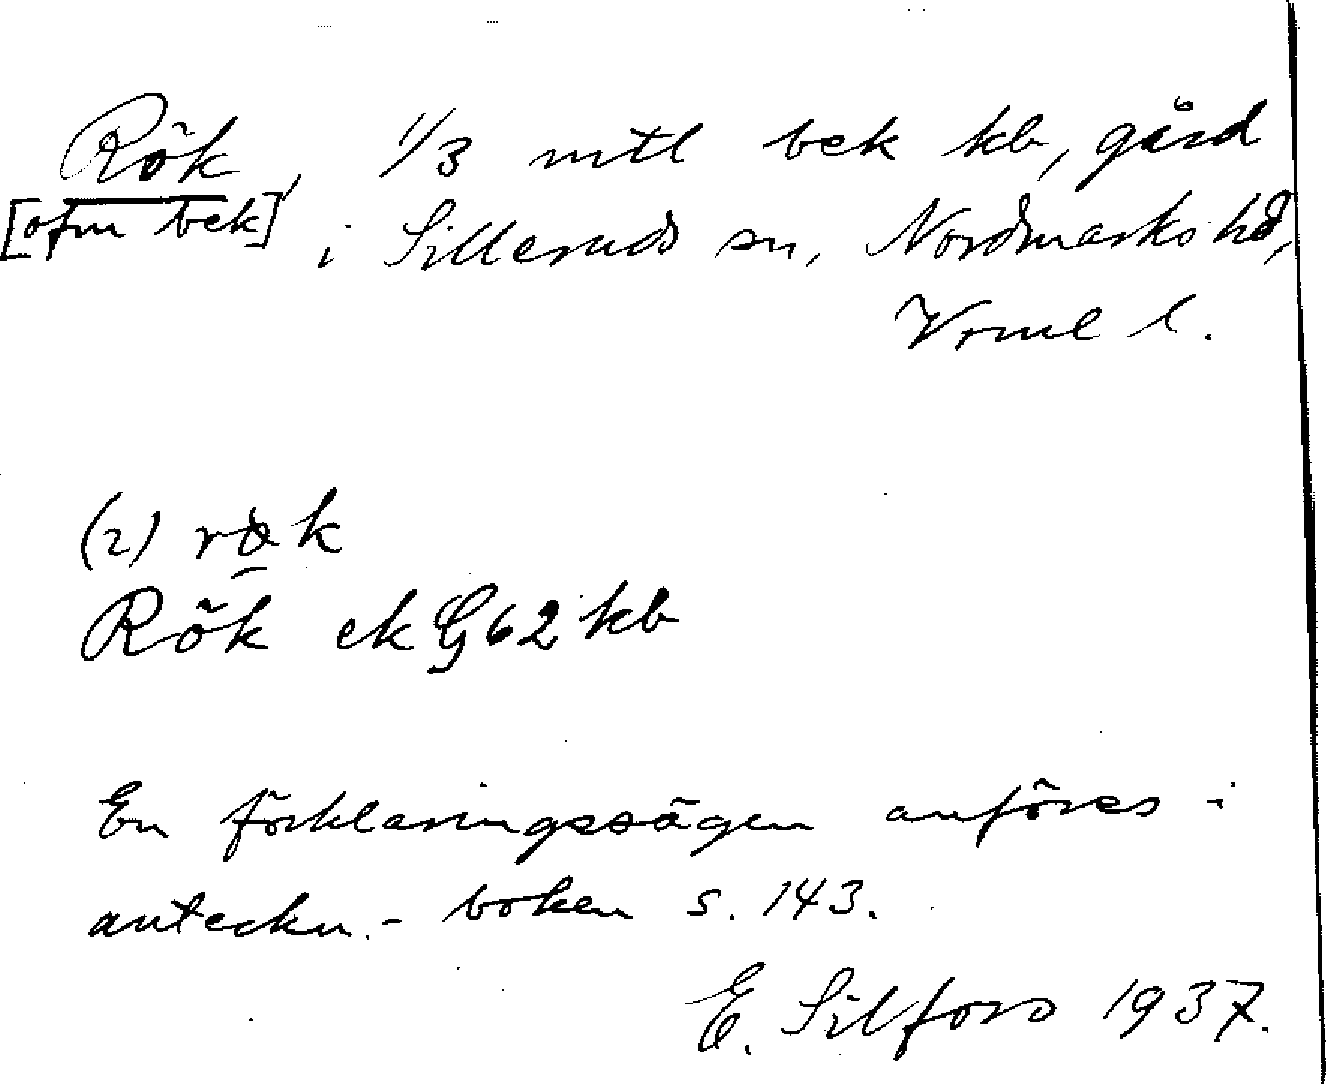 Rök, 1/3 mtl bek kb, gård
[ofm bek] i Silleruds sn, Nordmarks hd,
Vrml l.
(2) rök
Rök ek G62 kb
En förklaringssägen anföres i
anteckn.- boken s. 143.
E. Silfors 1937.